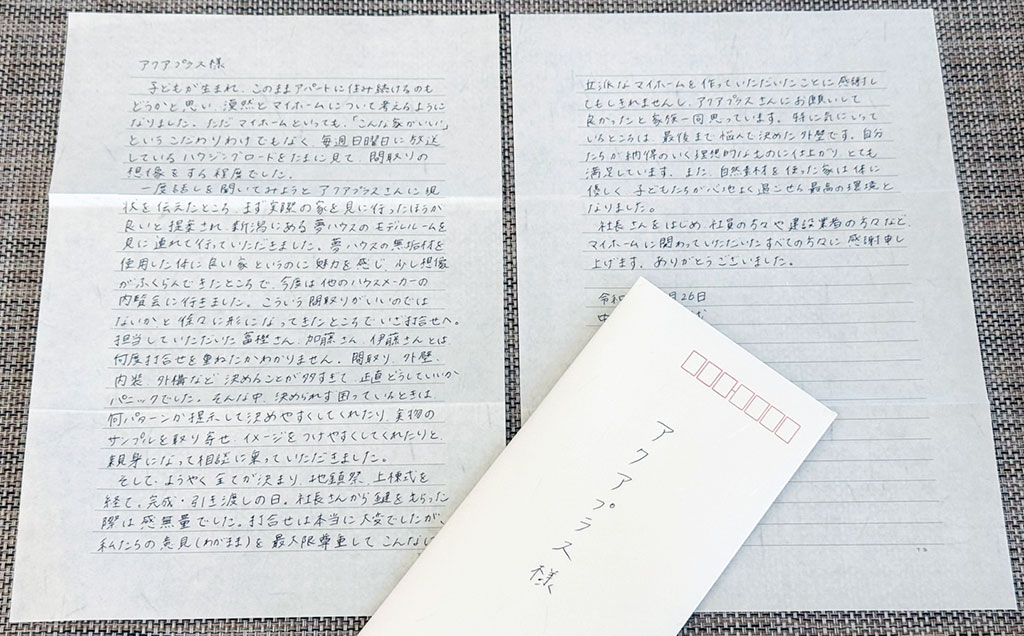 アクアプラス様
子どもが生まれ、このままアパートに住み続けるのも
どうかと思い、漠然とマイホームについて考えるように
なりました。ただマイホームといっても、「こんな家がいい」
というこだわりわけでもなく、毎週日曜日に放送
しているハウジングロードをたまに見て、間取りの
想像をする程度でした。
一度話しを聞いてみようとアクアプラスさんに現
状を伝えたところ、まず実際の家を見に行ったほうが
良いと提案され、新潟にある夢ハウスのモデルルームを
見に連れて行っていただきました。夢ハウスの無垢材を
使用した体に良い家というのに魅力を感じ、少し想像
がふくらんできたところで、今度は他のハウスメーカーの
内覧会に行きました。こういう間取りがいいのでは
ないかと徐々に形になってきたところでいざ打合せへ。
担当していただいた富樫さん、加藤さん、伊藤さんとは
何度打合せを重ねたかわかりません。間取り、外壁、
内装、外構など決めることが多すぎて、正直どうしていいか
パニックでした。そんな中、決められず困っているときは、
何パターンか提示して決めやすくしてくれたり、実物の
サンプルを取り寄せ、イメージをつけやすくしてくれたりと、
親身になって相談に乗っていただきました。
そして、ようやく全てが決まり、地鎮祭、上棟式を
経て、完成・引き渡しの日。社長さんから鍵をもらった
際は感無量でした。打合せは本当に大変でしたが、
私たちの意見(わがまま)を最大限尊重してこんなに
立派なマイホームを作っていただいたことに感謝し
てもしきれませんし、アクアプラスさんにお願いして
良かったと家族一同思っています。特に気にいって
いるところは、最後まで悩んで決めた外壁です。自分
たちが納得のいく理想的なものに仕上がりとても
満足しています。また、自然素材を使った家は体に
優しく、子どもたちが心地よく過ごせる最高の環境と
なりました。
社長さんをはじめ、社員の方々や建設業者の方々など、
マイホームに関わっていただいたすべての方々に感謝申し
上げます。ありがとうございました。
令和 月26日
アクアプラス様